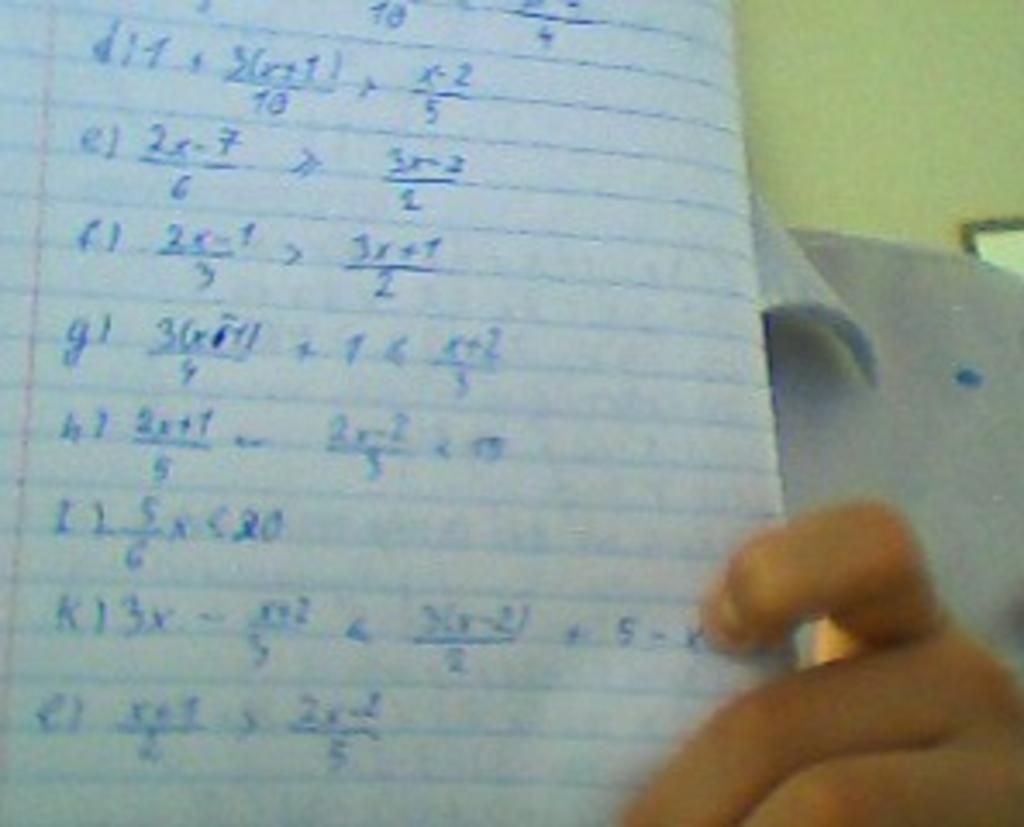 d) 1 + 3(x+1)/10 > x-2/5
e) 2x-7/6 ≥ 3x-2/2
f) 2x-1/3 > 3x+1/2
g) 3(x-1)/4 + 1 < x+2/3
h) 2x+1/5 - 2x-2/3 <
I) 5/6 x < 20
K) 3x - x+2/3 < 3(x-2)/2 + 5 - x
l) x+1/2 > 2x-1/5